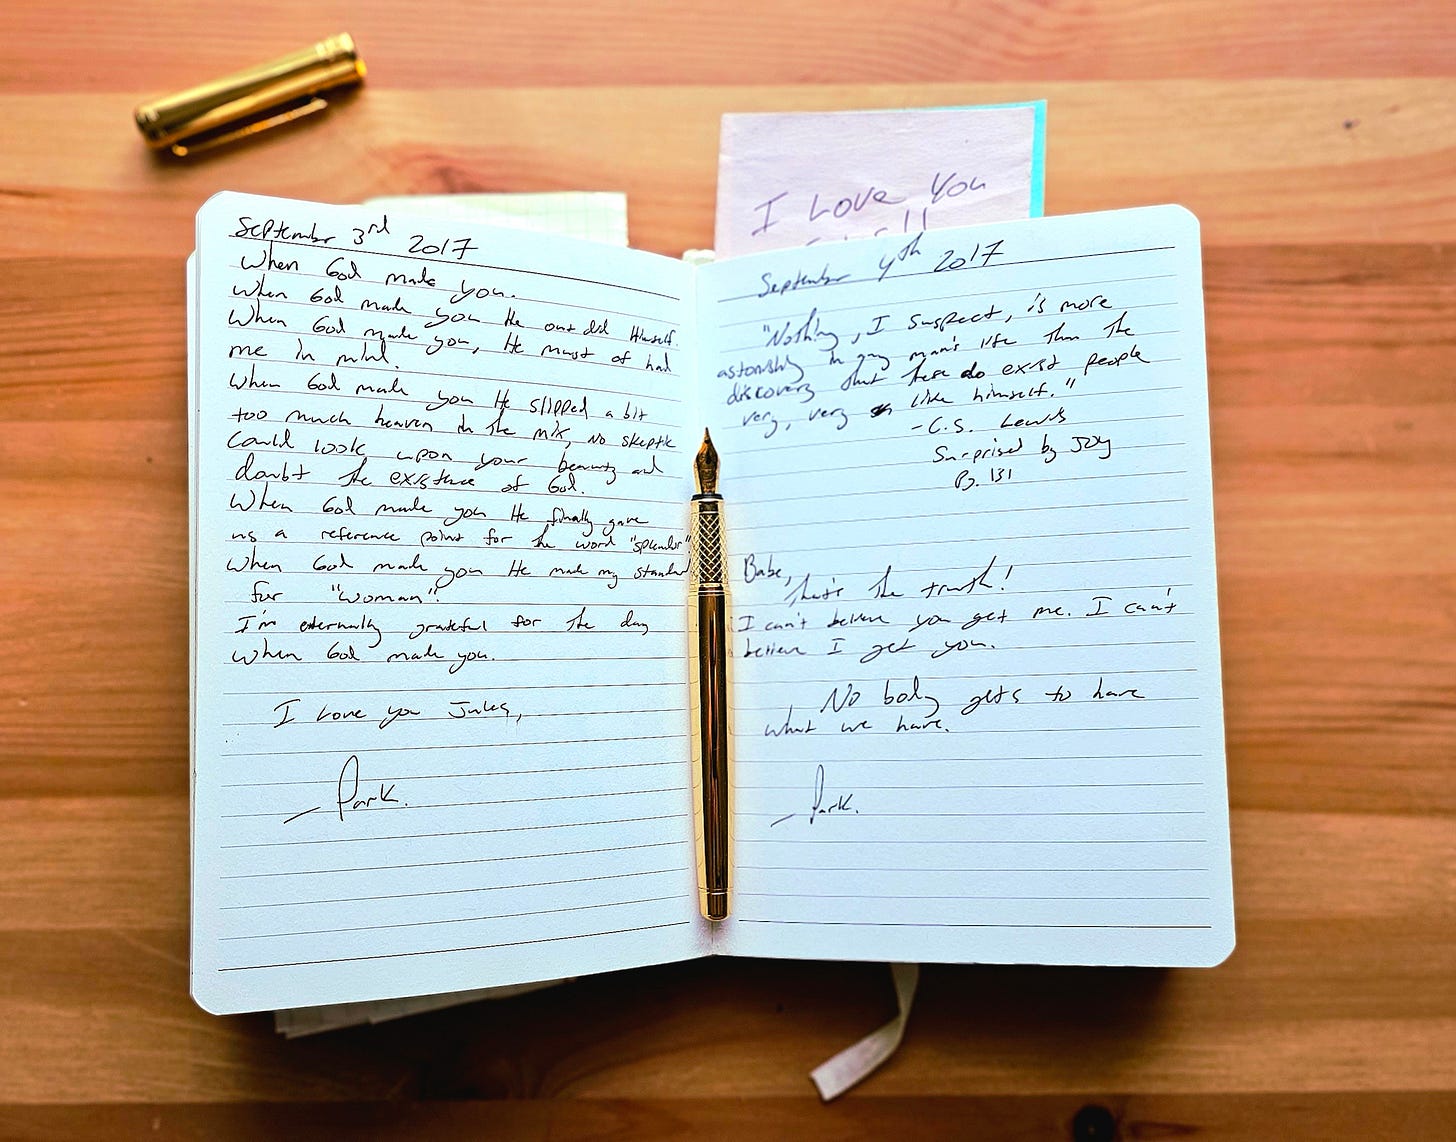 I Love You
September 3rd 2017
When God made you.
When God made you He out did Himself.
When God made you, He must of had
me in mind.
When God made you He slipped a bit
too much heaven in the mix, no skeptic
could look upon your beauty and
doubt the existence of God.
When God made you He finally gave
us a reference point for the word "splendor".
When God made you He made my standard
for "woman".
I'm eternally grateful for the day
When God made you.
I Love you Jules,
- Park.
September 4th 2017
"Nothing, I suspect, is more
astonishing in any man's life than the
discovery that there do exist people
very, very like himself."
-C.S. Lewis
Surprised by Joy
Pg. 131
Babe,
that's the truth!
I can't believe you get me. I can't
believe I get you.
No body gets to have
what we have.
- Park.